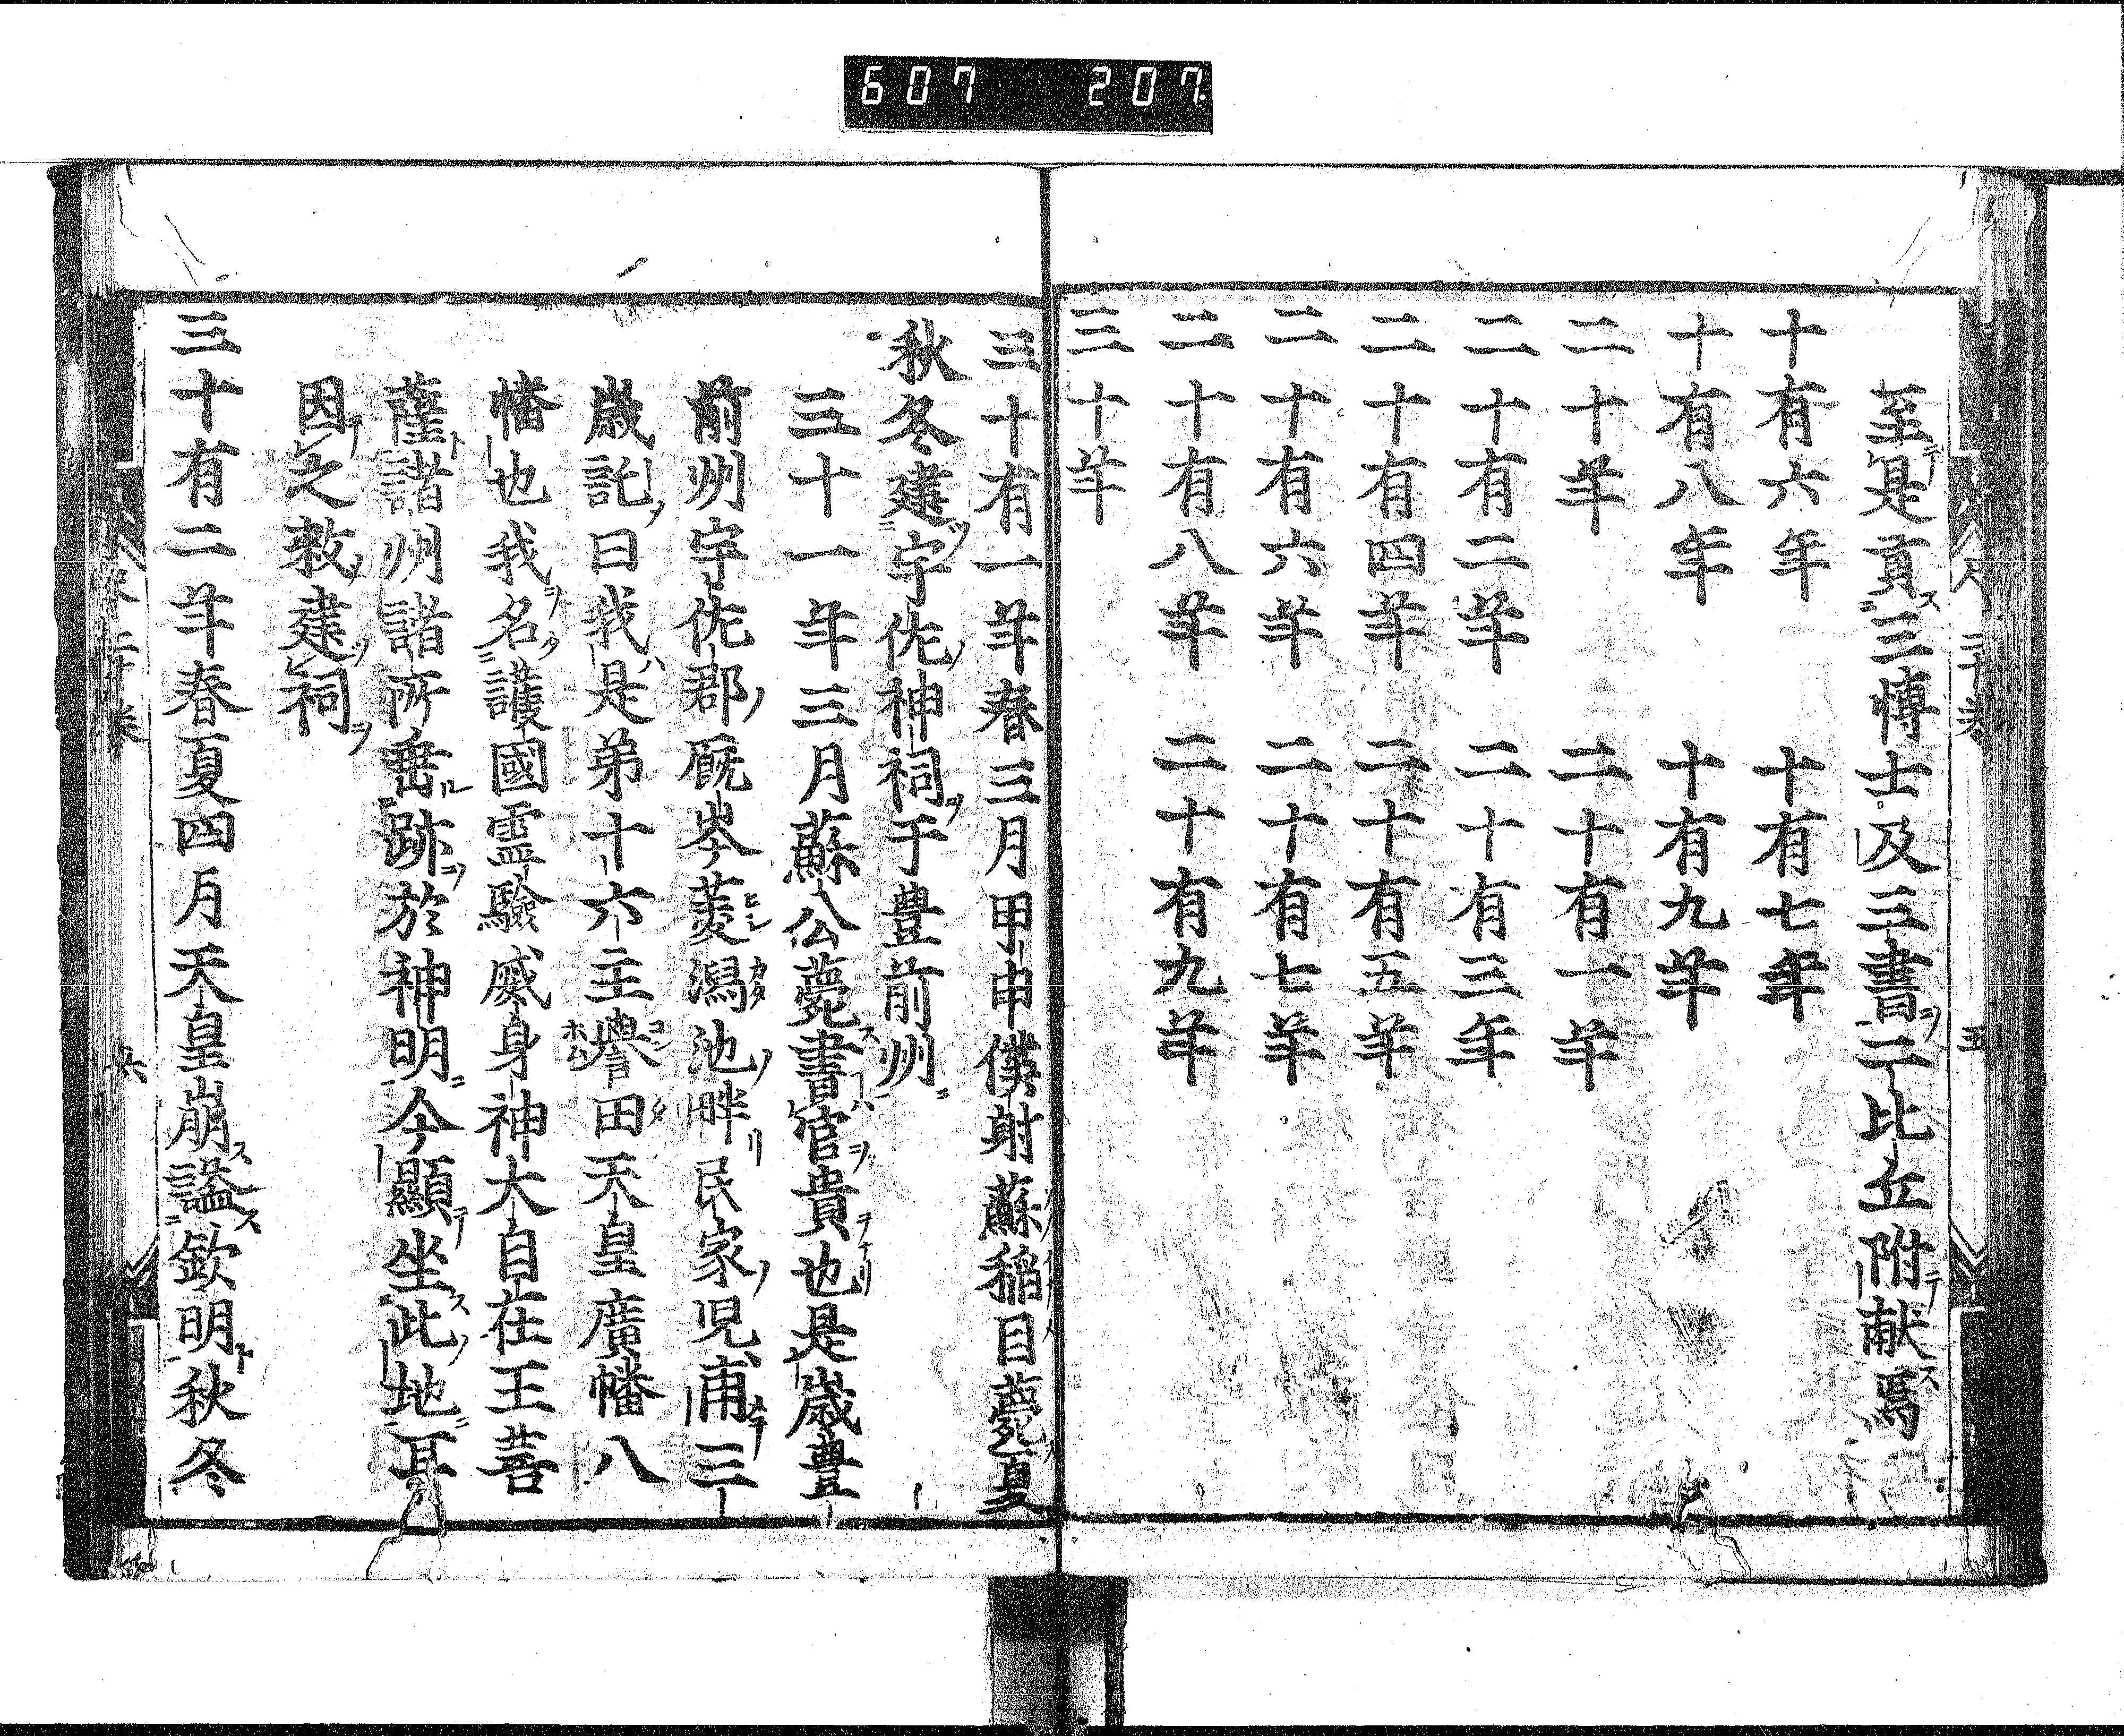 607 207
至是貢三博士及三書二比丘附献焉
十有六年 十有七年
十有八年 十有九年
二十年 二十有一年
二十有二年 二十有三年
二十有四年 二十有五年
二十有六年 二十有七年
二十有八年 二十有九年
三十年
三十有一年春三月甲申僕射蘇稲目薨夏
秋冬建宇佐神祠于豊前州
三十一年三月蘇公薨書官貴也是歳豊
前州宇佐郡厩岑菱潟池畔民家児甫三
歳託曰我是第十六主譽田天皇廣幡八
幡也我名護國霊驗威身神大自在王菩
薩諸州諸所垂跡於神明今顯坐此地耳
因之敕建祠
三十有二年春夏四月天皇崩謚欽明秋冬